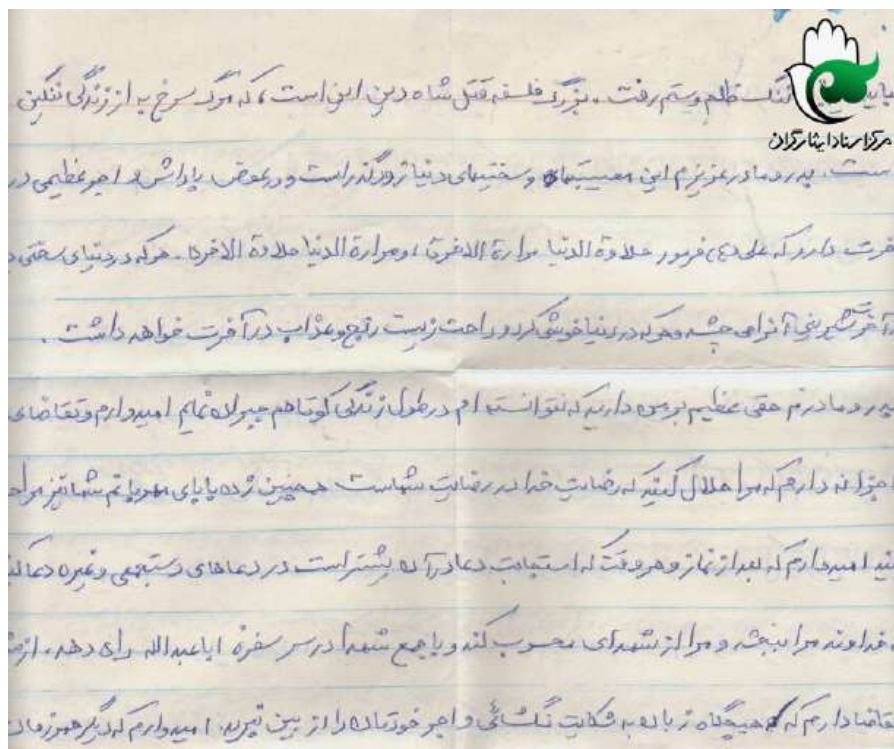 مرکز اسناد ایثارگران
ننگ ظلم و ستم رفت. بزرگ فلسفه قتل شاه دین این است، که مرگ سرخ به از زندگی ننگین
ست. پدر و مادر عزیزم این مصیبتهای و سختیهای دنیا زودگذر است و در عوض پاداش و اجر عظیمی در
خرت دارد که علی (ع) فرمود حلاوة الدنیا مرارة الاخرة، و مرارة الدنیا حلاوة الاخرة. هر که در دنیای سختی
آخرت شیرینی آنرا می چشد و هر که در دنیا خوشی کرد و راحت زیست رنج و عذاب در آخرت خواهد داشت.
در و مادرم حقی عظیم بر من دارید که نتوانسته ام در طول زندگی کوتاهم جبران نمایم امیدوارم و تقاضای
دارم که مرا حلال کنید که رضایت خدا در رضایت شماست همچنین شما نیز مرا
ید امیدوارم که بعد از نماز و هر وقت که استجابت دعا در آن بیشتر است در دعاهای دستجمعی و غیره دعا کن
خداوند مرا ببخشد و مرا از شهدای محسوب کند و با جمع شهدا در سر سفره اباعبدالله رای دهد. از
قاضا دارم که هیچگاه زبان به شکایت نگشائی و اجر خودتان را از بین نبرید. امیدوارم که دیگر همرزمان